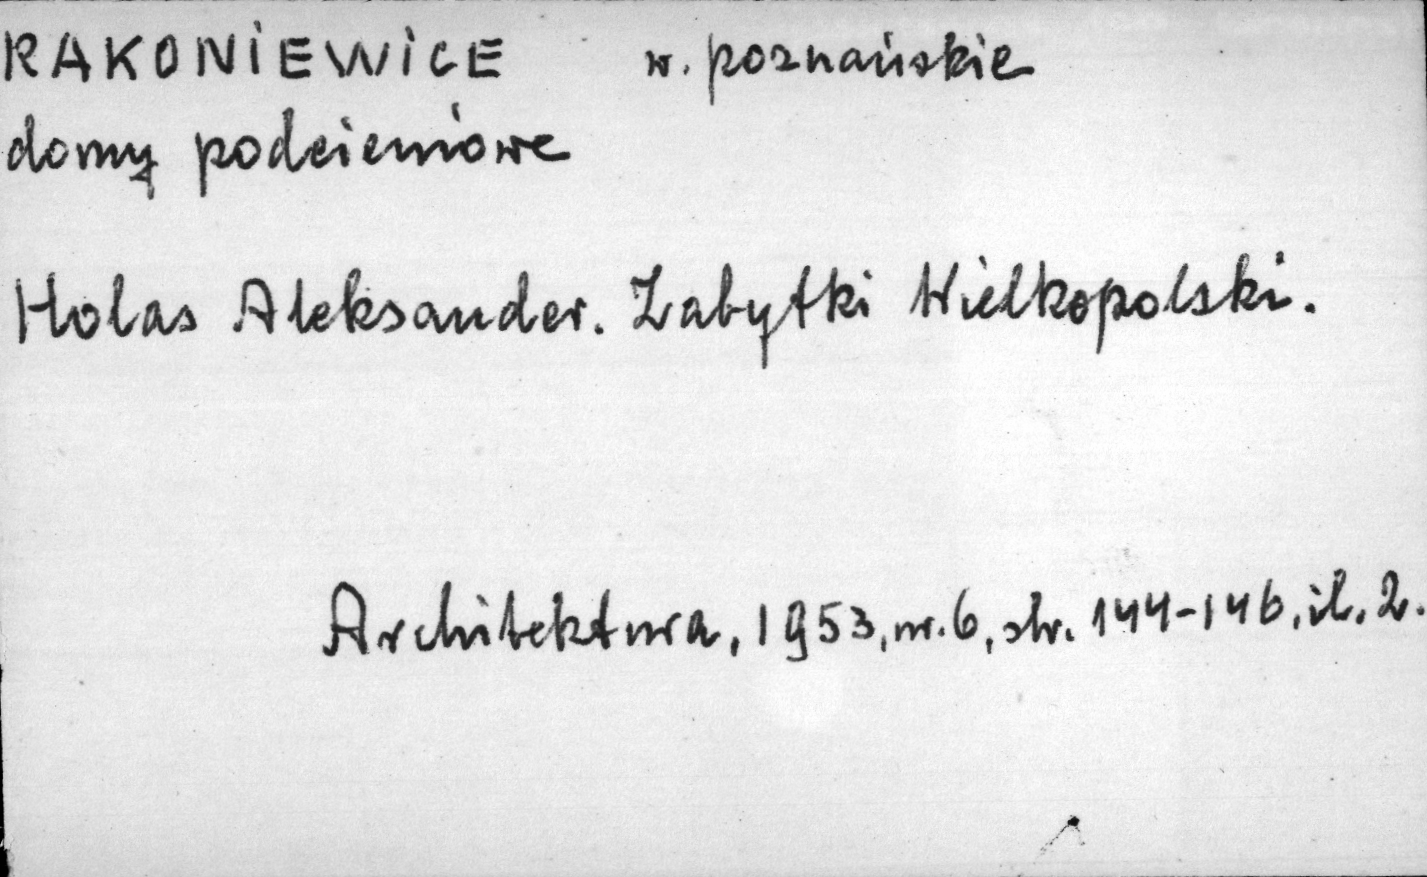 RAKONIEWICE w. poznańskie
domy podcieniowe
Holas Aleksander. Zabytki Wielkopolski.
Architektura, 1953, nr. 6, str. 144-146, il. 2.